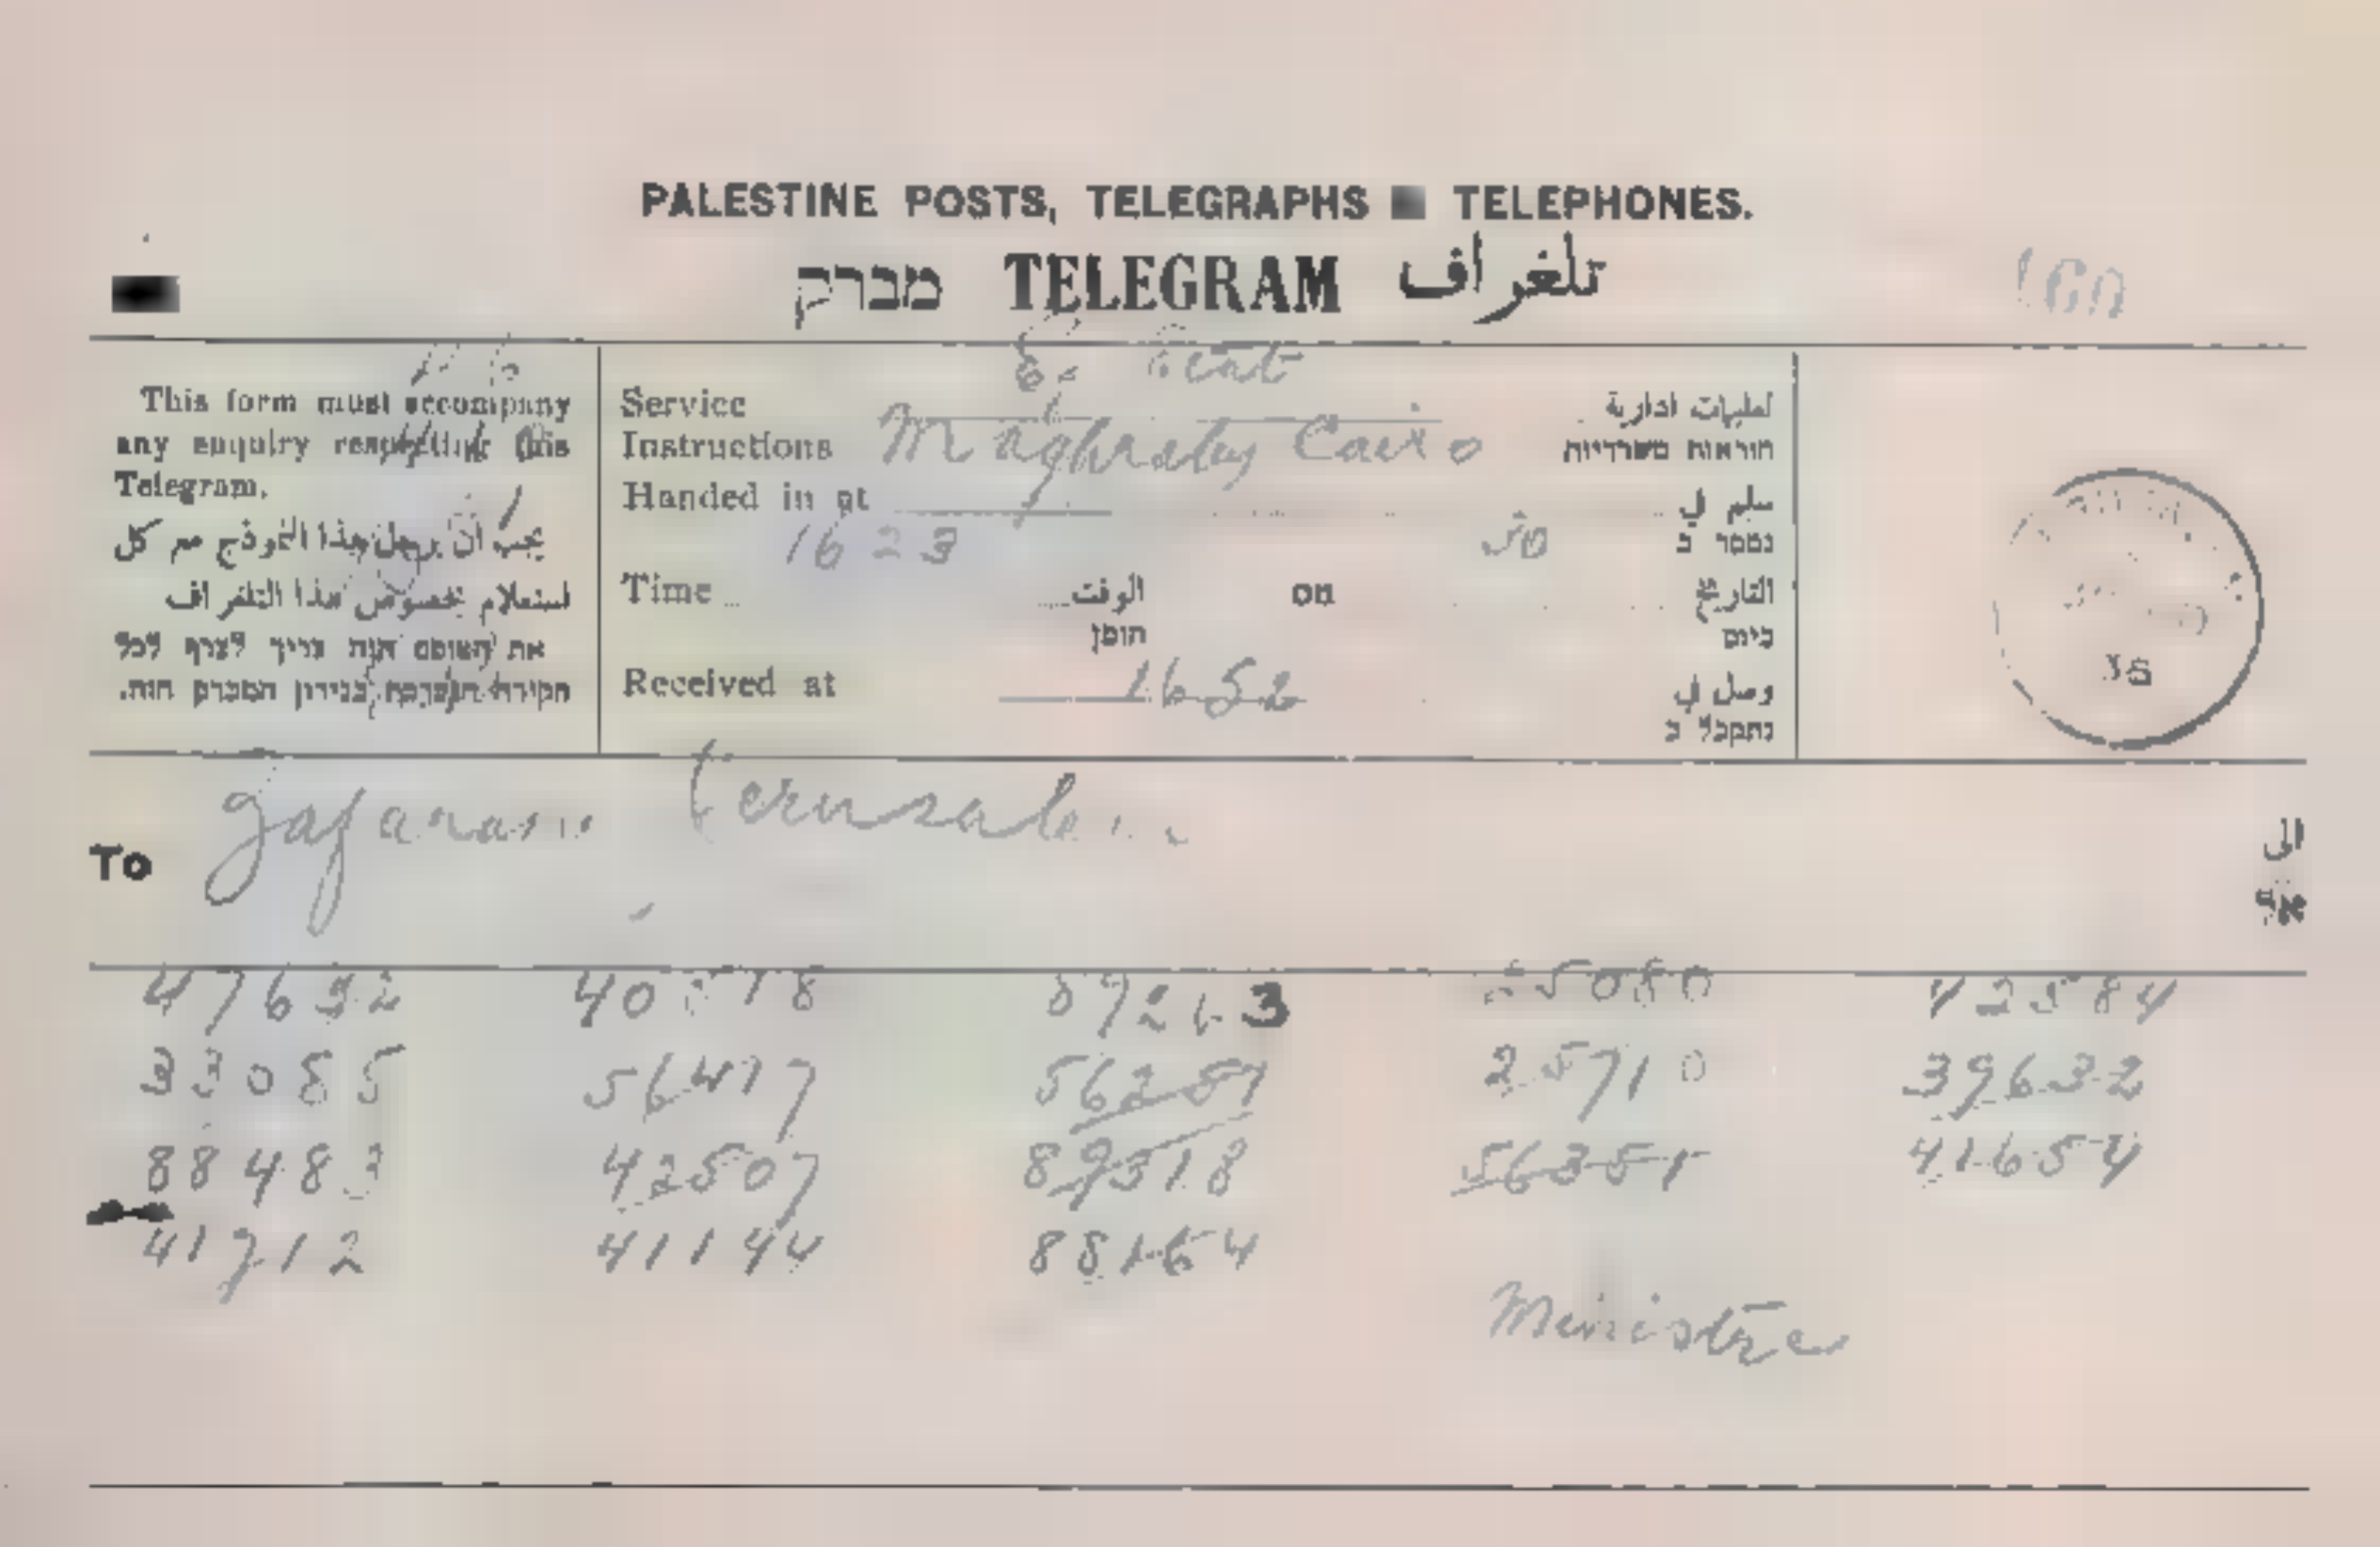 PALESTINE POSTS, TELEGRAPHS TELEPHONES.
מברק TELEGRAM تلغراف
This form must accompany
any enquiry respecting this
Telegram.
يجب ان يرسل هذا النموذج مع كل
استعلام بخصوص هذا التلغراف
את הטופס הזה צריך לצרף לכל
חקירה הנערכת בנידון המברק הזה.
Etat
Service تعليمات ادارية
Instructions Maghraby Cairo הוראות משרדיות
Handed in at سلم في
1623 50 נמסר ב
Time الوقت on التاريخ
הזמן ביום
Received at 1652 وصل في
נתקבל ב
36
Jerusalem
To الى
אל
47632 42584
33085 56477 56257 25710 39632
88483 42507 89318 56351 41654
41712 41144 88164
Ministre